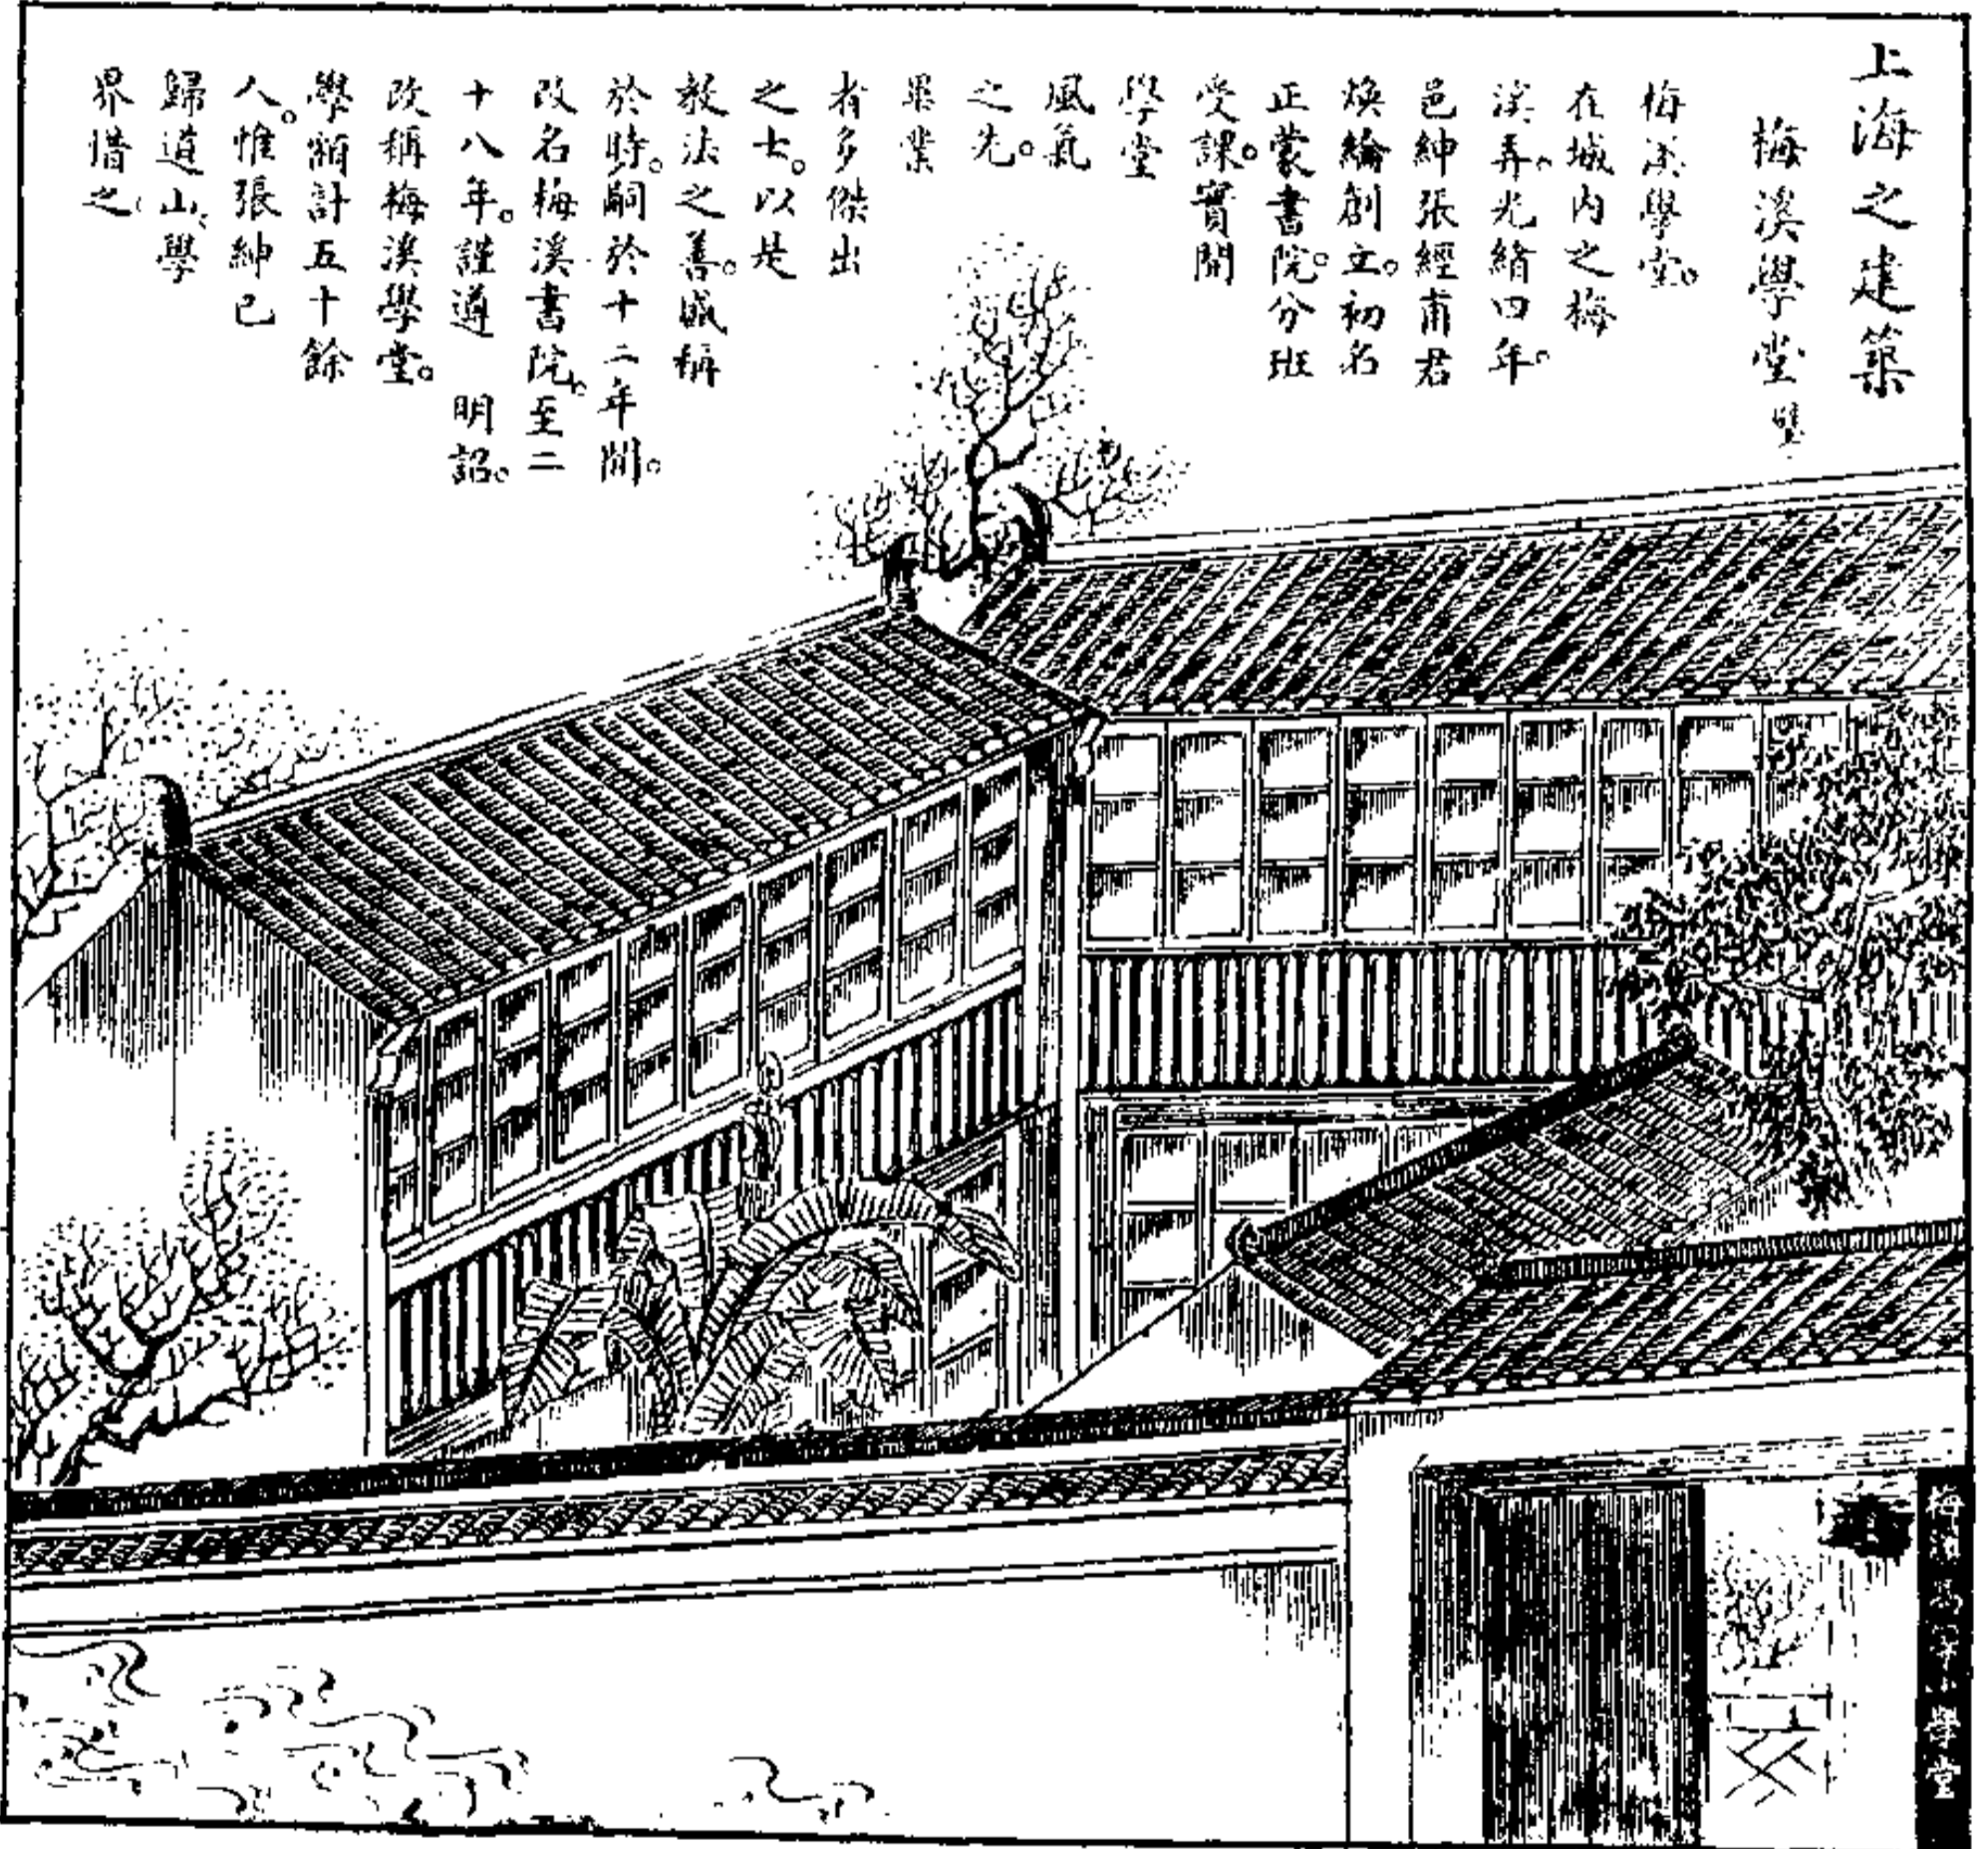 上海之建築
梅溪學堂
梅溪學堂。
在城內之梅
溪弄。光緒四年。
邑紳張經甫君
煥綸創立。初名
正蒙書院。分班
受課。實開
學堂
風氣
之先。
畢業
者多傑出
之士。以是
教法之善。咸稱
於時。嗣於十二年間。
改名梅溪書院。至二
十八年。謹遵 明詔。
改稱梅溪學堂。
學額計五十餘
人。惟張紳已
歸道山、學
界惜之
梅溪高等小學堂